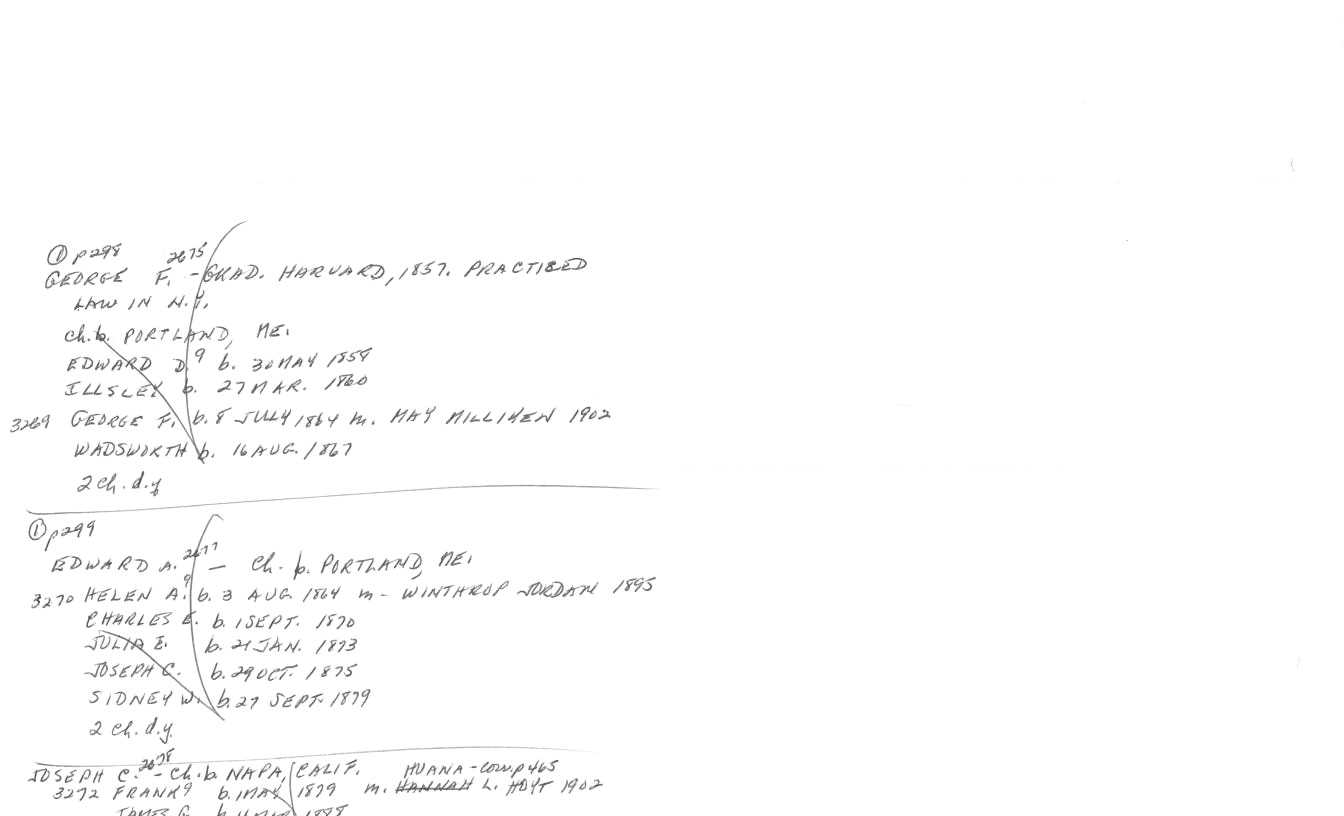 ① p298 2675
GEORGE F. - GRAD. HARVARD, 1857. PRACTICED
LAW IN N.Y.
ch. b. PORTLAND, ME.
EDWARD D.⁹ b. 30 MAY 1858
ILLSLEY b. 27 MAR. 1860
3269 GEORGE F. b. 8 JULY 1864 m. MAY MILLIKEN 1902
WADSWORTH b. 16 AUG. 1867
2 ch. d.y
① p299
EDWARD A. 2677 — Ch. b. PORTLAND, ME.
3270 HELEN A.⁹ b. 3 AUG. 1864 m - WINTHROP JORDAN 1895
CHARLES E. b. 1 SEPT. 1870
JULIA E. b. 21 JAN. 1873
JOSEPH C. b. 29 OCT. 1875
SIDNEY W. b. 27 SEPT. 1879
2 ch. d.y.
JOSEPH C. 2678 - Ch. b. NAPA, CALIF. HUANA - corr. p465
3272 FRANK⁹ b. 1 MAY 1879 m. HANNAH L. HOYT 1902
JAMES G. b.